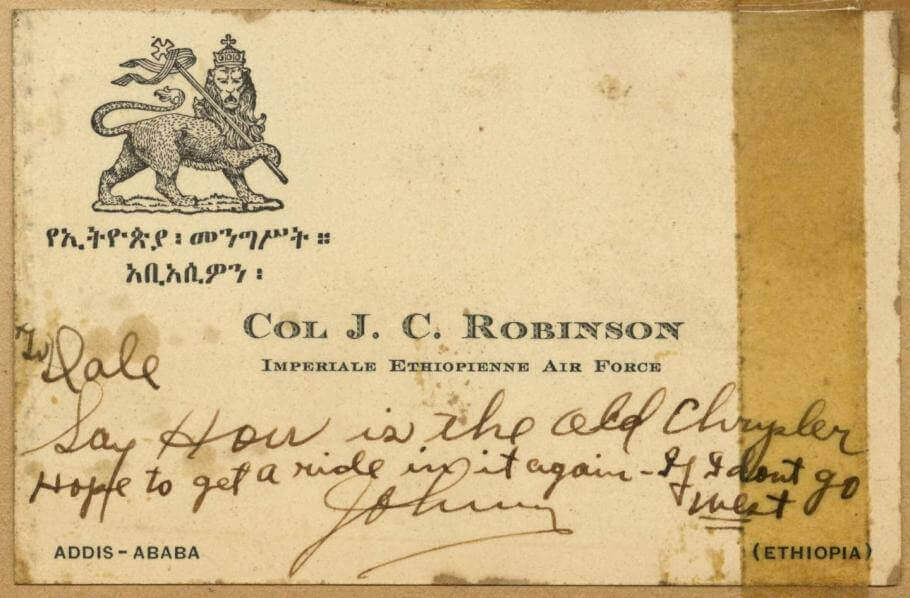 የኢትዮጵያ ፡ መንግሥት ።
አቢአሲዎን ፡
COL J. C. ROBINSON
IMPERIALE ETHIOPIENNE AIR FORCE
To Dale
Say How is the old Chrysler
Hope to get a ride in it again - If I dont go
west
Johnny
ADDIS-ABABA
(ETHIOPIA)